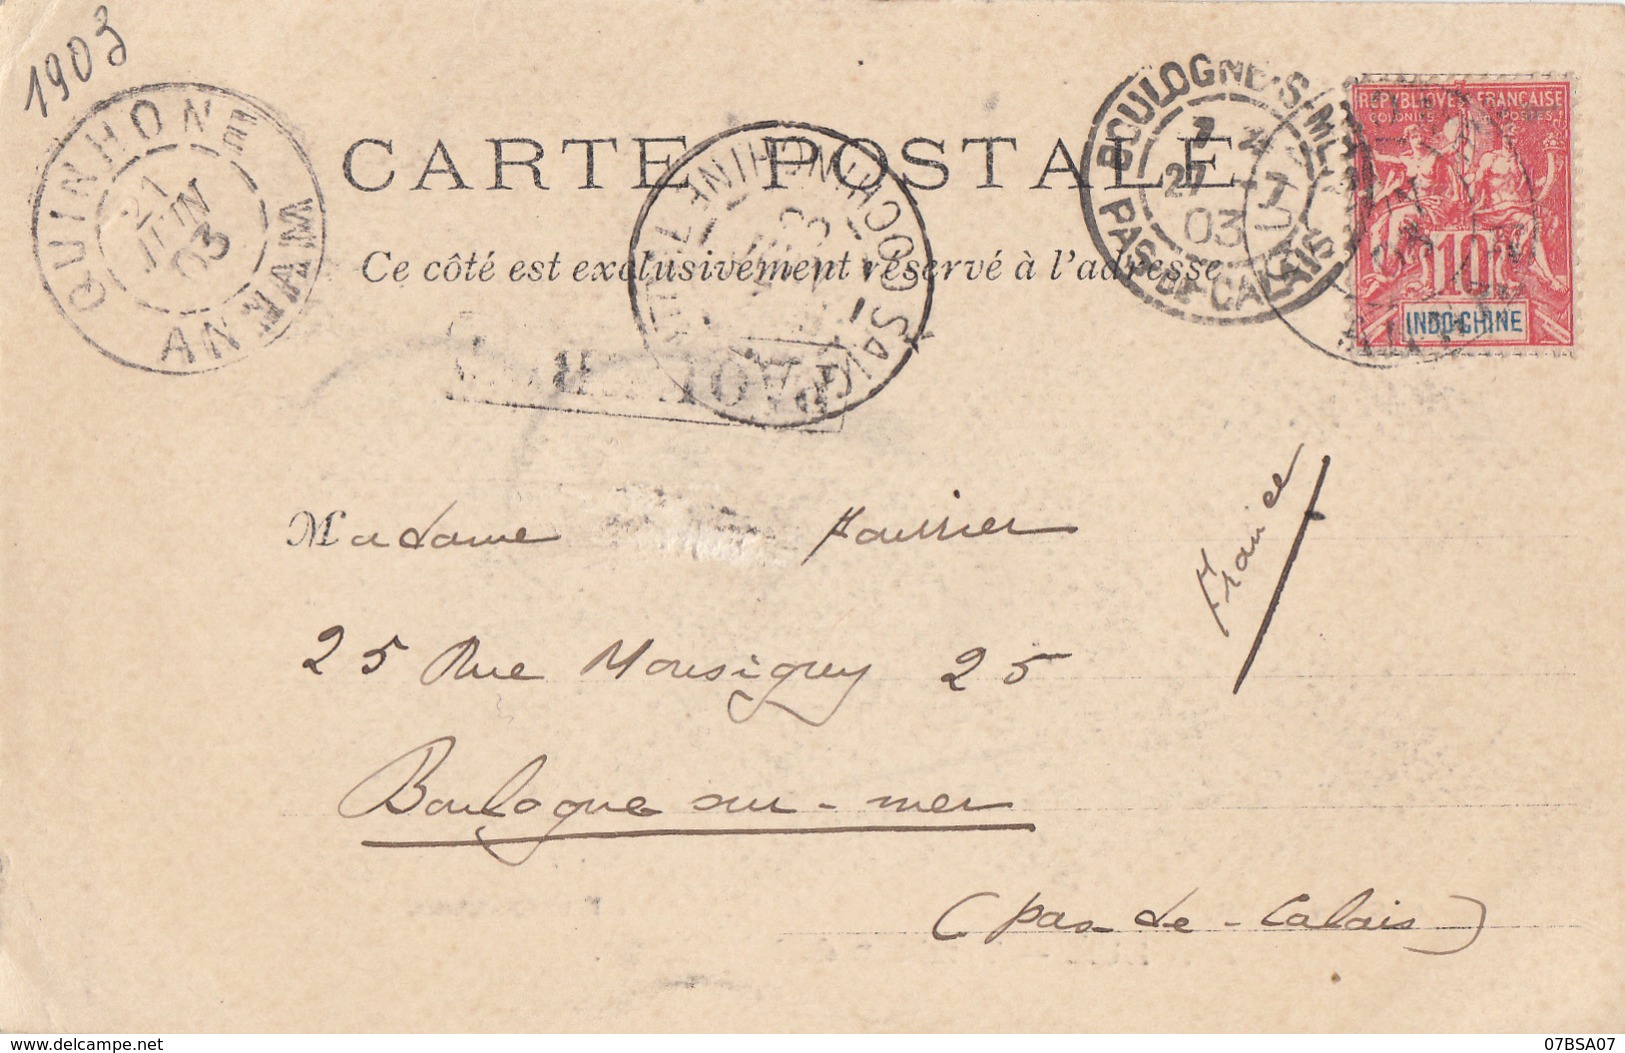 1903
QUINHONE
21
JUIN
03
ANNAM
CARTE POSTALE
Ce côté est exclusivement réservé à l'adresse
SAIGON
COCHINCHINE
BOULOGNE-S-MER
27
03
PAS-DE-CALAIS
REPUBLIQUE FRANÇAISE
COLONIES POSTES
10
INDO-CHINE
Madame
France
25 Rue Monsigny 25
Boulogne sur-mer
(pas-de-Calais)
© delcampe.net
07BSA07